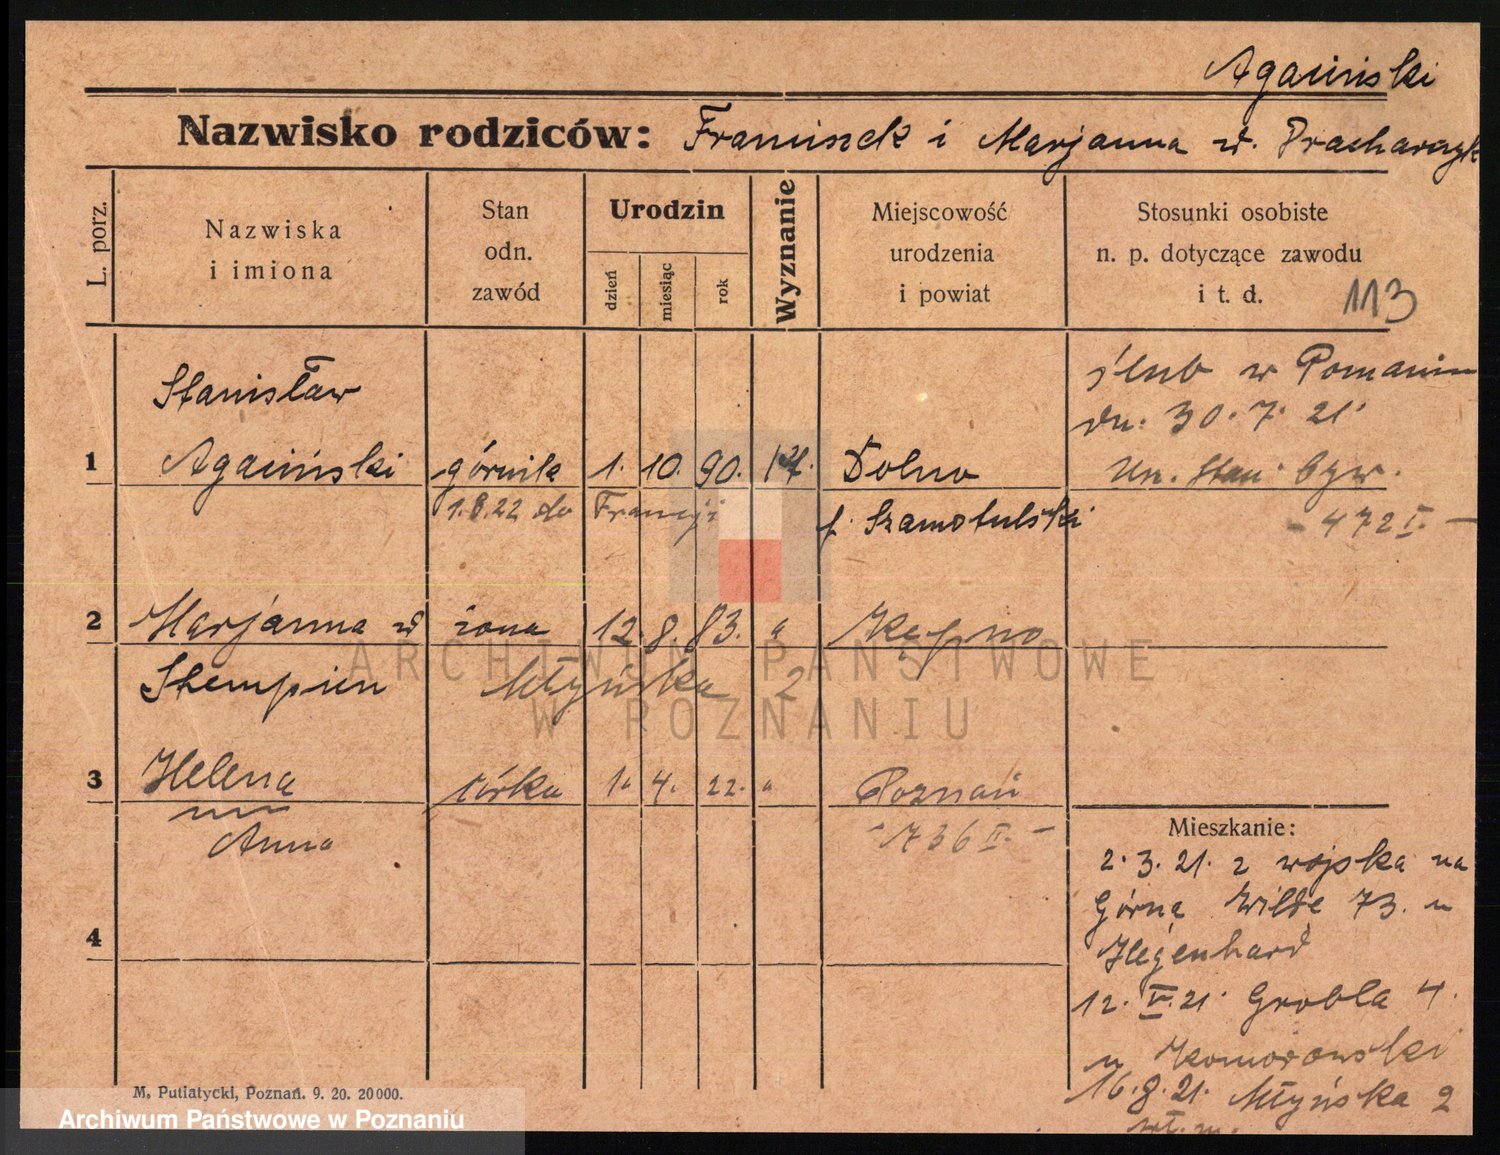 Agaciński
Nazwisko rodziców: Franciszek i Marjanna z d. Pracharczyk
L. porz.
Nazwiska
i imiona
Stan
odn.
zawód
Urodzin
dzień
miesiąc
rok
Wyznanie
Miejscowość
urodzenia
i powiat
Stosunki osobiste
n. p. dotyczące zawodu
i t. d.
113
Stanisław
1 Agaciński górnik 1. 10. 90. kat. Dolno
1.8.22 do Francji p. Szamotulski
ślub w Poznaniu
dn. 30.7.21
Urz. Stan. Cyw.
- 472 I. -
2 Marjanna zd żona 12. 8. 83. " Kępno
Stempien Młyńska 2
3 Helena córka 1. 4. 22. " Poznań
Anna - 736 II. -
4
Mieszkanie:
2.3.21. z wojska na
Górną Wildę 73. u
Hegenhard
12. V. 21. Grobla 4.
u Komorowski
16.8.21. Młyńska 2
wł. m.
M. Putiatycki, Poznań. 9. 20. 20000.
ARCHIWUM PAŃSTWOWE
W POZNANIU
Archiwum Państwowe w Poznaniu